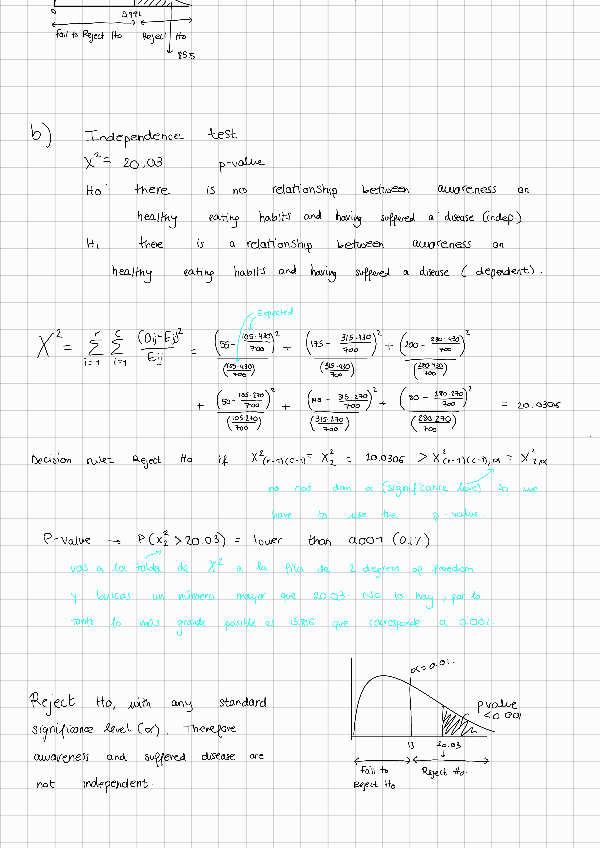 0 5.991
Fail to Reject Ho Reject Ho
855
b) Independence test
X² = 20.03 p-value
Ho: there is no relationship between awareness on
healthy eating habits and having suffered a disease (indep)
H1 there is a relationship between awareness on
healthy eating habits and having suffered a disease (dependent).
Expected
X² = Σ(i=1, r) Σ(i=1, c) (Oij-Eij)²/Eij = (55 - 105·430/700)²/(105·430/700) + (175 - 315·430/700)²/(315·430/700) + (200 - 280·430/700)²/(280·430/700)
+ (50 - 105·270/700)²/(105·270/700) + (140 - 315·270/700)²/(315·270/700) + (80 - 280·270/700)²/(280·270/700) = 20.0306
Decision rule: Reject Ho if X²(r-1)(c-1) = X²₂ = 20.0306 > X²(r-1)(c-1),α = X²₂,α
no not dan α (significance level) so we
have to use the p-value
P-value → P(X²₂ > 20.03) = lower than 0.001 (0.1%)
vas a la tabla de X² a la fila de 2 degrees of freedom
y buscas un número mayor que 20.03. No lo hay, por lo
tanto lo más grande posible es 13.816 que corresponde a 0.001.
Reject Ho, with any standard
significance level (α). Therefore
awareness and suffered disease are
not independent.
α = 0.01.
p value
< 0.001
13 20.03
Fail to Reject Ho.
Reject Ho